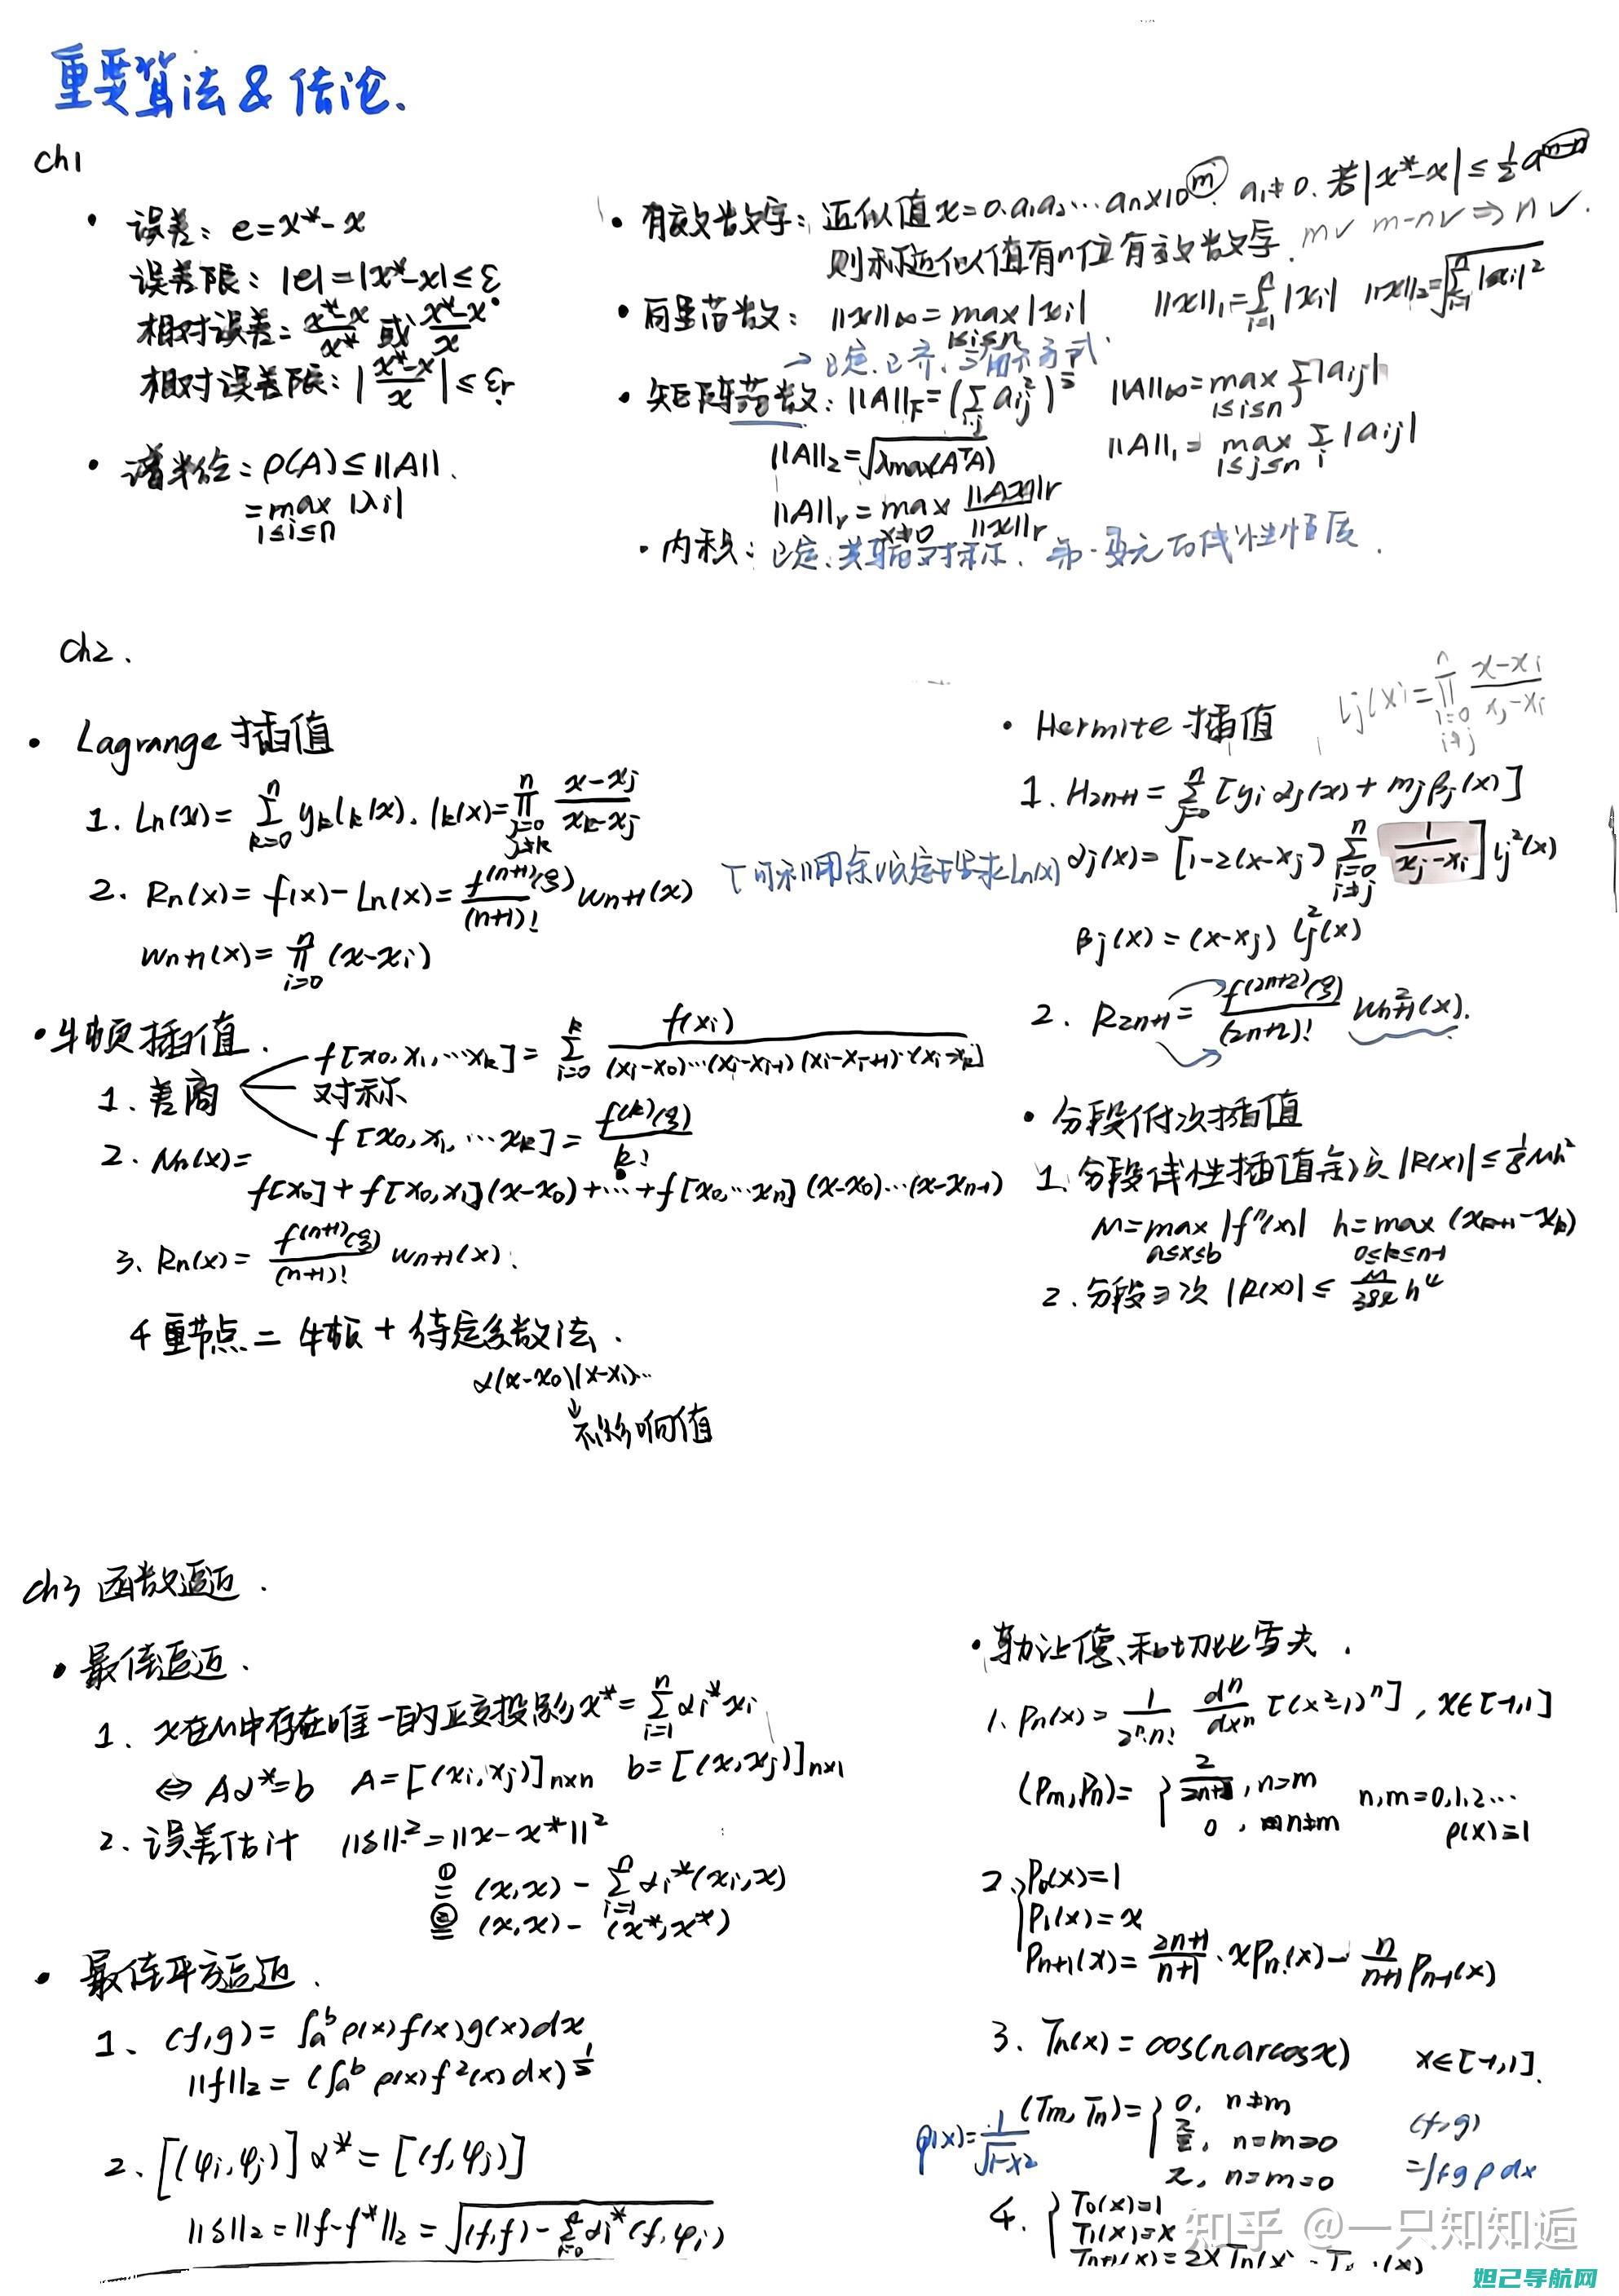 重要算法&结论.
ch1
• 误差: e=x*-x
误差限: |e|=|x*-x|≤ε
相对误差= (x*-x)/x* 或 (x*-x)/x
相对误差限: |(x*-x)/x|≤εr
• 谱半径: ρ(A)≤||A||.
=max |λi|
1≤i≤n
• 有效数字: 近似值 x=0.a1a2…an×10^m. a1≠0. 若|x*-x|≤1/2 a^(m-n)
则称近似值有n位有效数字. m✓ m-n✓ ⇒ n✓.
• 向量范数: ||x||∞=max|xi| ||x||1=Σ|xi| ||x||2=√(Σ|xi|²)
1≤i≤n
→正定.正齐.三角不等式.
• 矩阵范数: ||A||F=(Σ aij²)^(1/2) ||A||∞=max Σ|aij|
1≤i≤n j
||A||2=√(λmax(AᵀA)) ||A||1=max Σ|aij|
1≤j≤n i
||A||r=max ||Ax||r/||x||r
x≠0
• 内积: 正定.共轭对称. 第一变元的线性性质.
ch2.
• Lagrange 插值
1. Ln(x)= Σ(k=0,n) yk lk(x). lk(x)=Π(j=0,j≠k,n) (x-xj)/(xk-xj)
2. Rn(x)=f(x)-Ln(x)= f^(n+1)(ξ)/(n+1)! wn+1(x)
wn+1(x)=Π(i=0,n) (x-xi)
• 牛顿插值.
1. 差商
f[x0,x1,…xk]= Σ(i=0,k) f(xi)/((xi-x0)…(xi-xi-1)(xi-xi+1)…(xi-xk))
对称
f[x0,x1,…xk]= f^(k)(ξ)/k!
2. Nn(x)=
f[x0]+f[x0,x1](x-x0)+…+f[x0,…xn](x-x0)…(x-xn-1)
3. Rn(x)= f^(n+1)(ξ)/(n+1)! wn+1(x).
4 重节点= 牛顿+待定系数法.
α(x-x0)(x-x1)…
↓
不影响值
• Hermite 插值
lj(x)=Π(i=0,i≠j,n) (x-xi)/(xj-xi)
1. H2n+1= Σ(j=0,n) [yi αj(x)+mj βj(x)]
αj(x)= [1-2(x-xj) Σ(i=0,i≠j,n) 1/(xj-xi)] lj²(x)
βj(x)=(x-xj) lj²(x)
2. R2n+1= f^(2n+2)(ξ)/(2n+2)! wn+1²(x).
• 分段低次插值
1. 分段线性插值余项 |R(x)|≤1/8 Mh²
M=max|f''(x)| h=max(xk+1-xk)
a≤x≤b 0≤k≤n-1
2. 分段三次 |R(x)|≤ M/384 h⁴
ch3 函数逼近.
• 最佳逼近.
1. x在M中存在唯一的正交投影 x*=Σ(i=1,n) αi* xi
⇔ Aα*=b A=[(xi,xj)]n×n b=[(x,xj)]n×1
2. 误差估计 ||δ||²=||x-x*||²
①= (x,x)-Σ(i=1,n) αi*(xi,x)
②= (x,x)-(x*,x*)
• 最佳平方逼近.
1. (f,g)=∫a^b ρ(x)f(x)g(x)dx
||f||2=(∫a^b ρ(x)f²(x)dx)^(1/2)
2. [(φi,φj)]α*=[(f,φj)]
||δ||2=||f-f*||2=√((f,f)-Σ(i=0,n) αi*(f,φi))
• 勒让德和切比雪夫.
1. Pn(x)= 1/(2ⁿ·n!) dⁿ/dxⁿ [(x²-1)ⁿ], x∈[-1,1]
(Pm,Pn)= { 2/(2n+1), n=m n,m=0,1,2…
0, n≠m ρ(x)=1
2. { P0(x)=1
P1(x)=x
Pn+1(x)= (2n+1)/(n+1)·xPn(x)- n/(n+1) Pn-1(x)
3. Tn(x)=cos(n arccos x) x∈[-1,1].
ρ(x)=1/√(1-x²) (Tm,Tn)= { 0, n≠m (f,g)
π/2, n=m≠0 =∫fgρdx
π, n=m=0
4. { T0(x)=1
T1(x)=x
Tn+1(x)=2xTn(x)-T (x)
知乎 @一只知知逅
妲己导航网